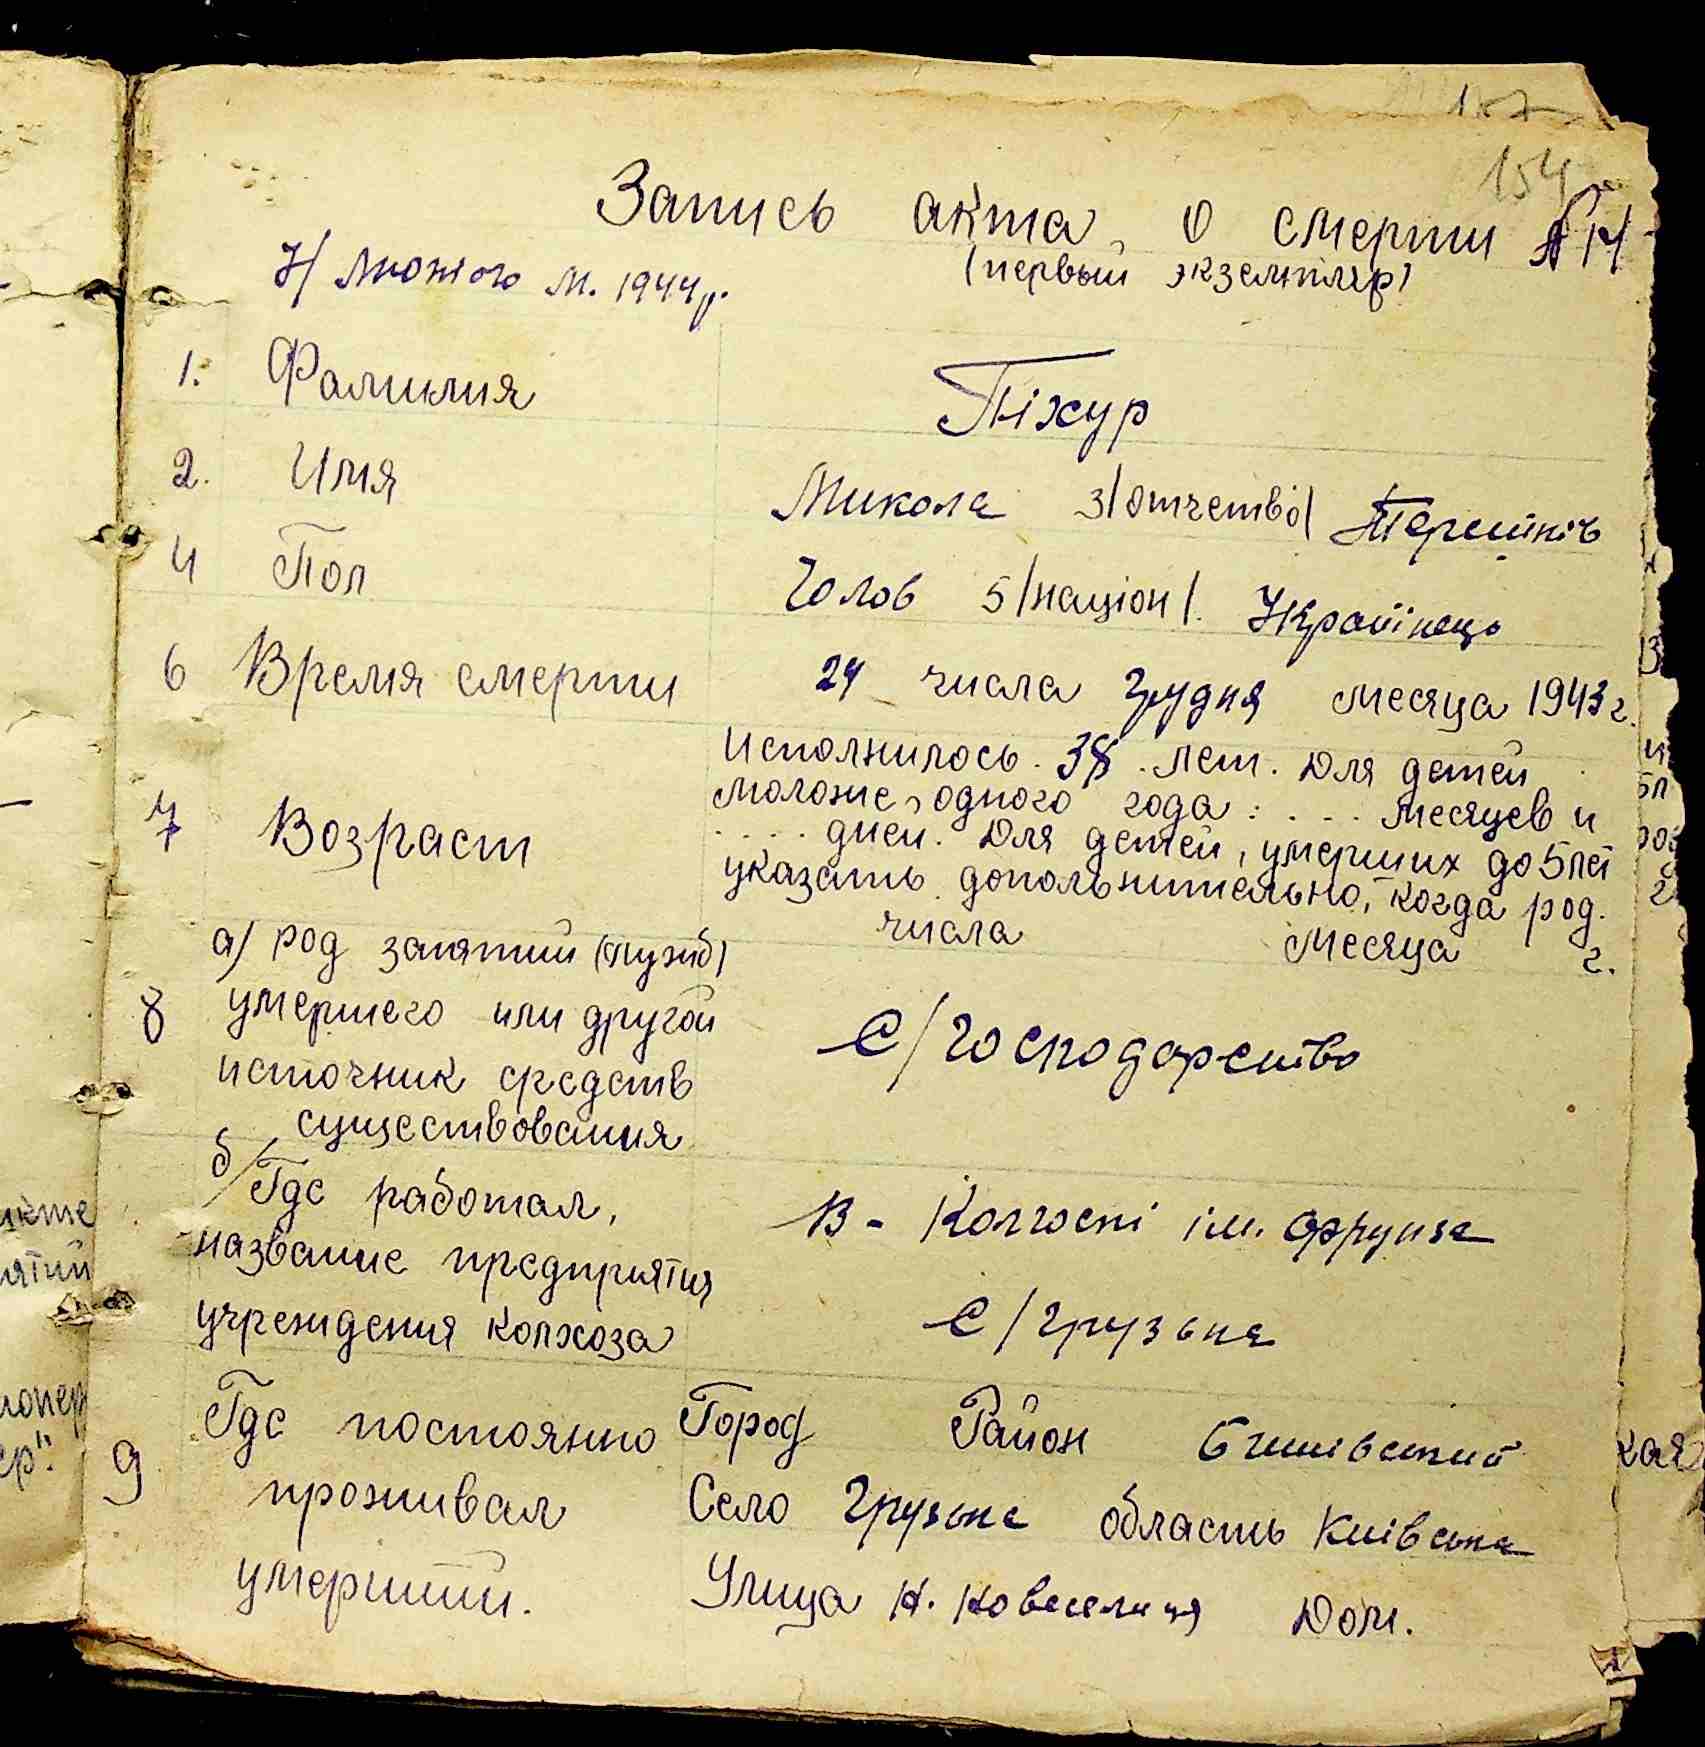 154
Запись акта о смерти № 14
7/ Лютого м. 1944 р. (первый экземпляр)
1. Фамилия Піхур
2. Имя Микола 3/отчество/
4 Пол Чолов 5/націон/. Українець
6 Время смерти 24 числа Грудня месяца 1943 г.
Исполнилось 38 лет. Для детей
моложе одного года: .... месяцев и
7 Возраст .... дней. Для детей, умерших до 5 лет
указать дополнительно, когда род.
числа месяца г.
а/ род занятий (служб)
8 умершего или другой
источник средств
существования
С/господарство
б/ Где работал,
название предприятия
учреждения колхоза
В - Колгоспі ім. Фрунзе
С/Грузьке
9 Где постоянно
проживал
умерший.
Город Район
Село Грузьке область Київська
Улица Н. Новеселиця Дом.